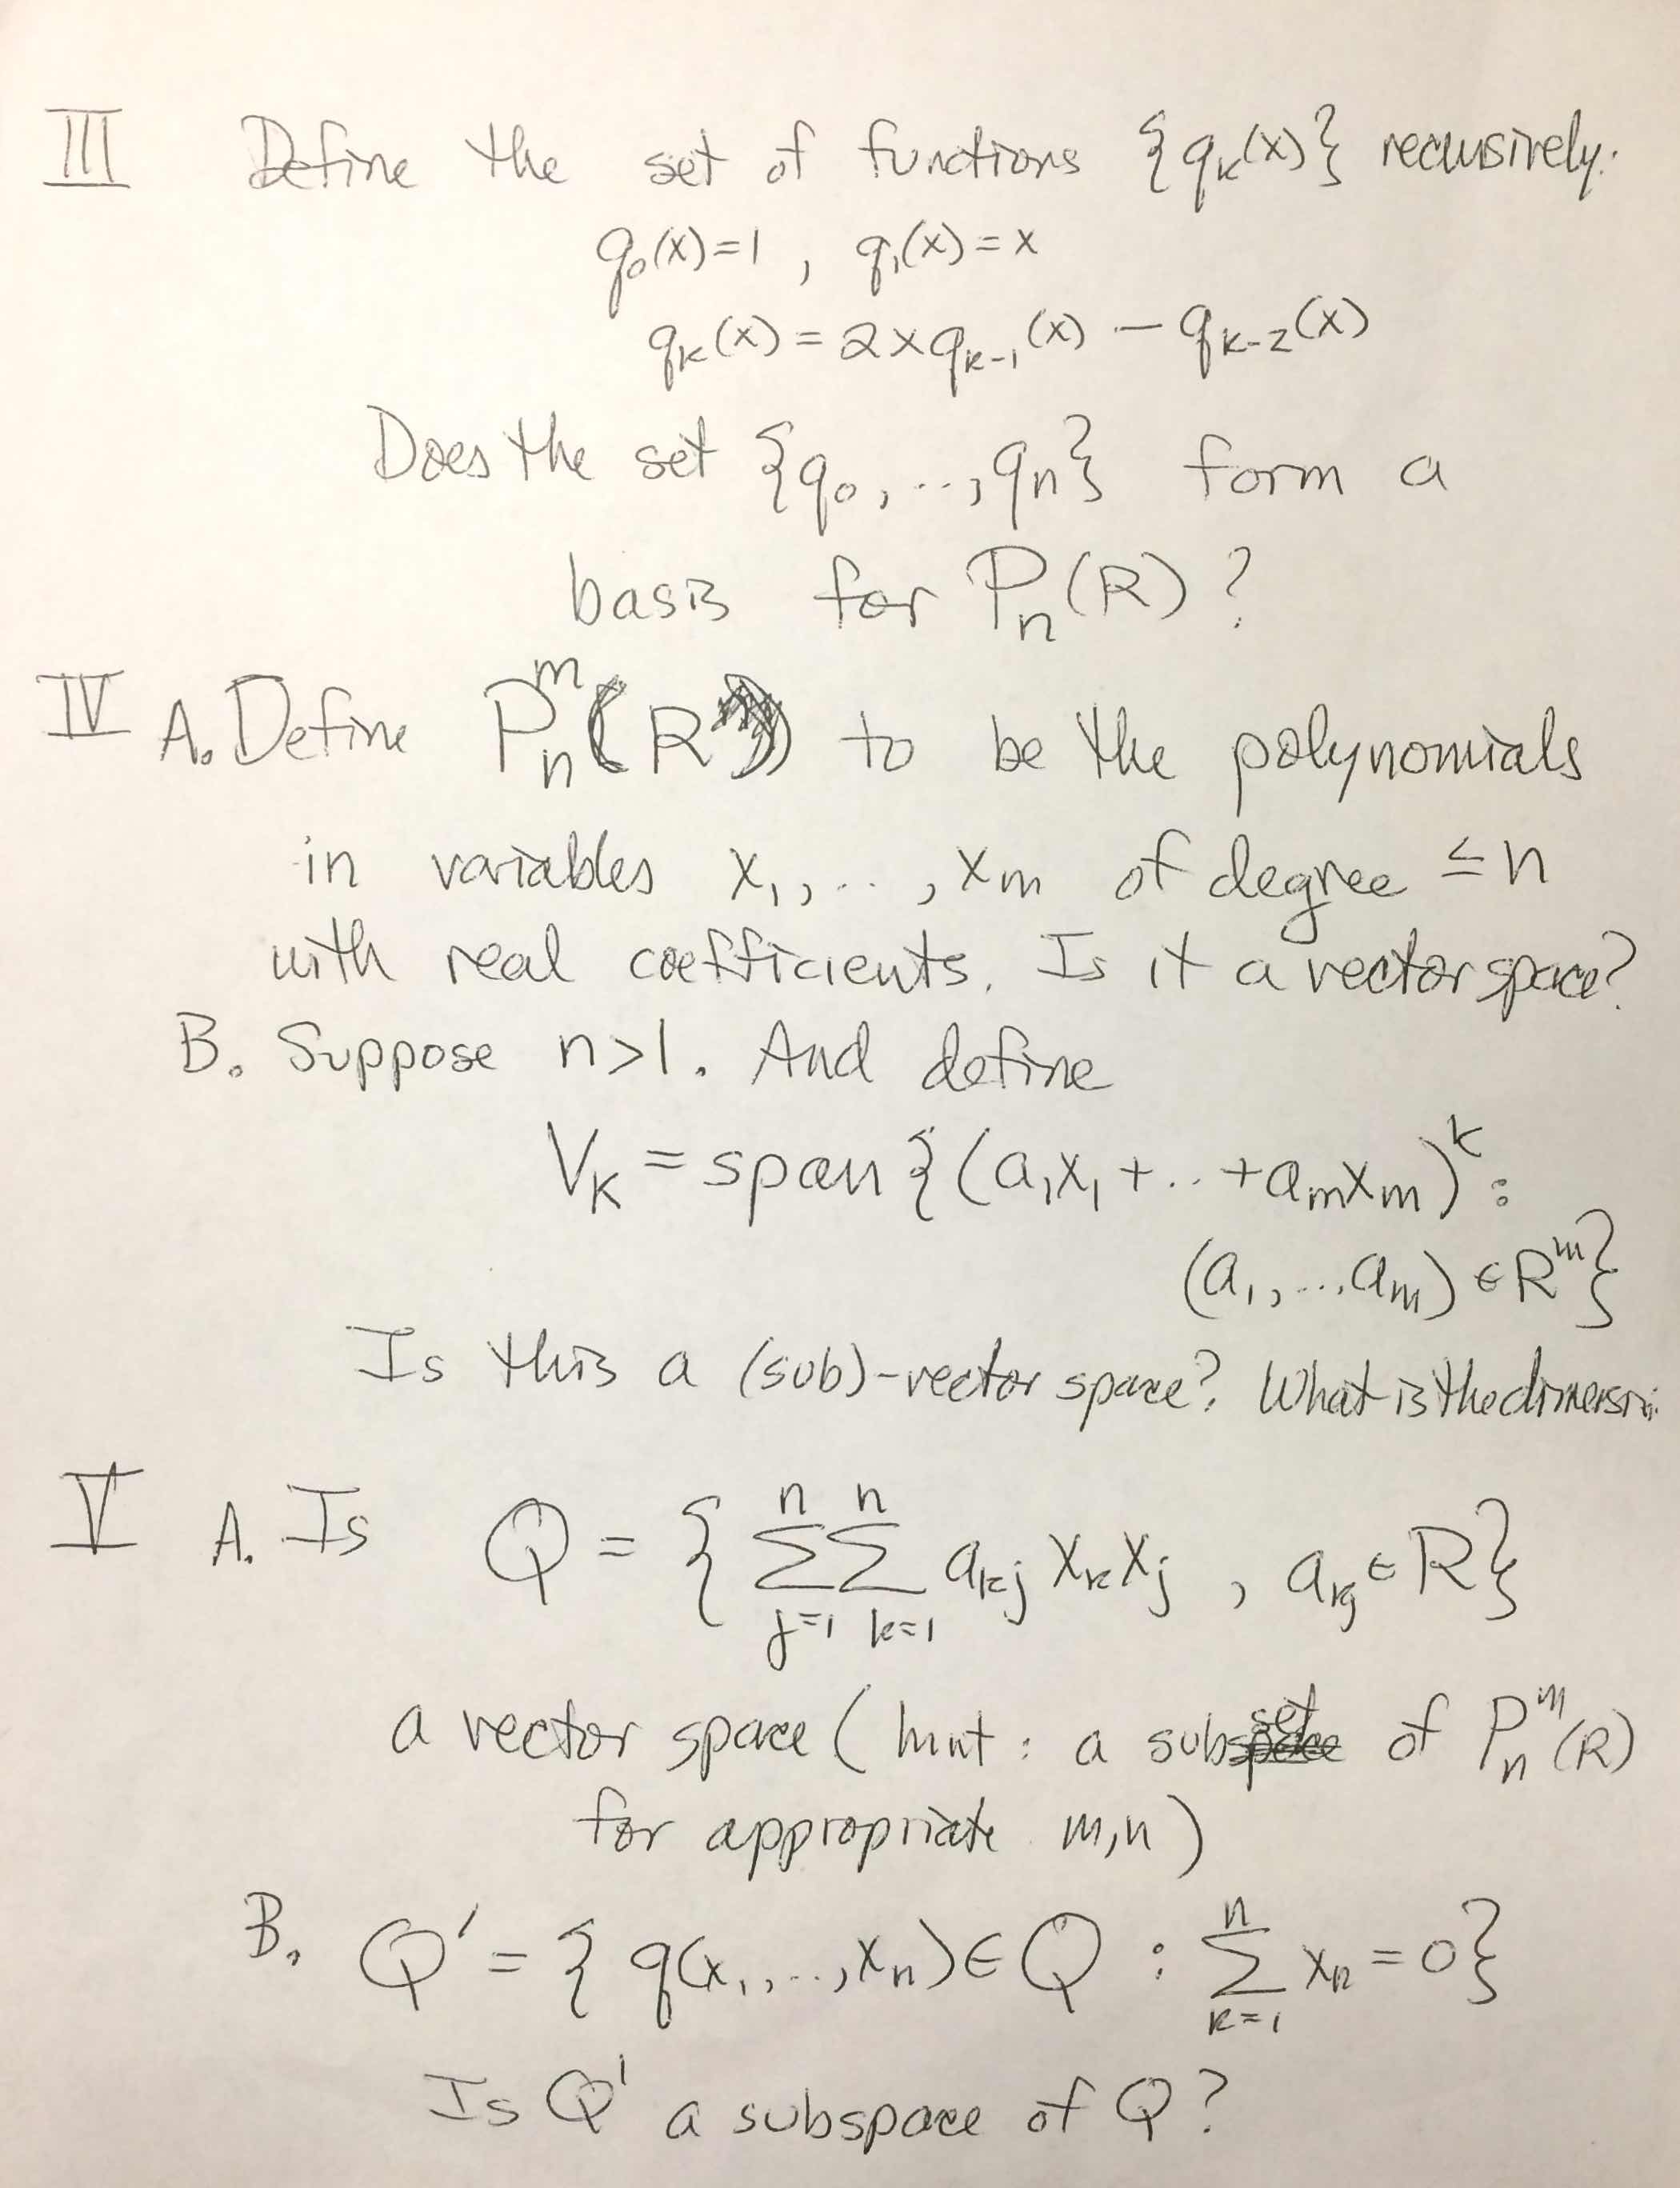 III Define the set of functions {qₖ(x)} recursively:
q₀(x)=1 , q₁(x)=x
qₖ(x) = 2xqₖ₋₁(x) − qₖ₋₂(x)
Does the set {q₀, .., qₙ} form a
basis for Pₙ(R)?
IV A. Define Pₙᵐ(R) to be the polynomials
in variables x₁, .. , xₘ of degree ≤ n
with real coefficients. Is it a vector space?
B. Suppose n>1. And define
Vₖ = span {(a₁x₁ + .. + aₘxₘ)ᵏ :
(a₁, ... aₘ) ∈ Rᵐ}
Is this a (sub)-vector space? What is the
V A. Is Q = { ∑ⁿⱼ₌₁ ∑ⁿₖ₌₁ aₖⱼ xₖxⱼ , aₖⱼ ∈ R}
a vector space (hint : a subset of Pₙᵐ(R)
for appropriate m,n)
B. Q' = { q(x₁, .., xₙ) ∈ Q : ∑ⁿₖ₌₁ xₖ = 0}
Is Q' a subspace of Q?